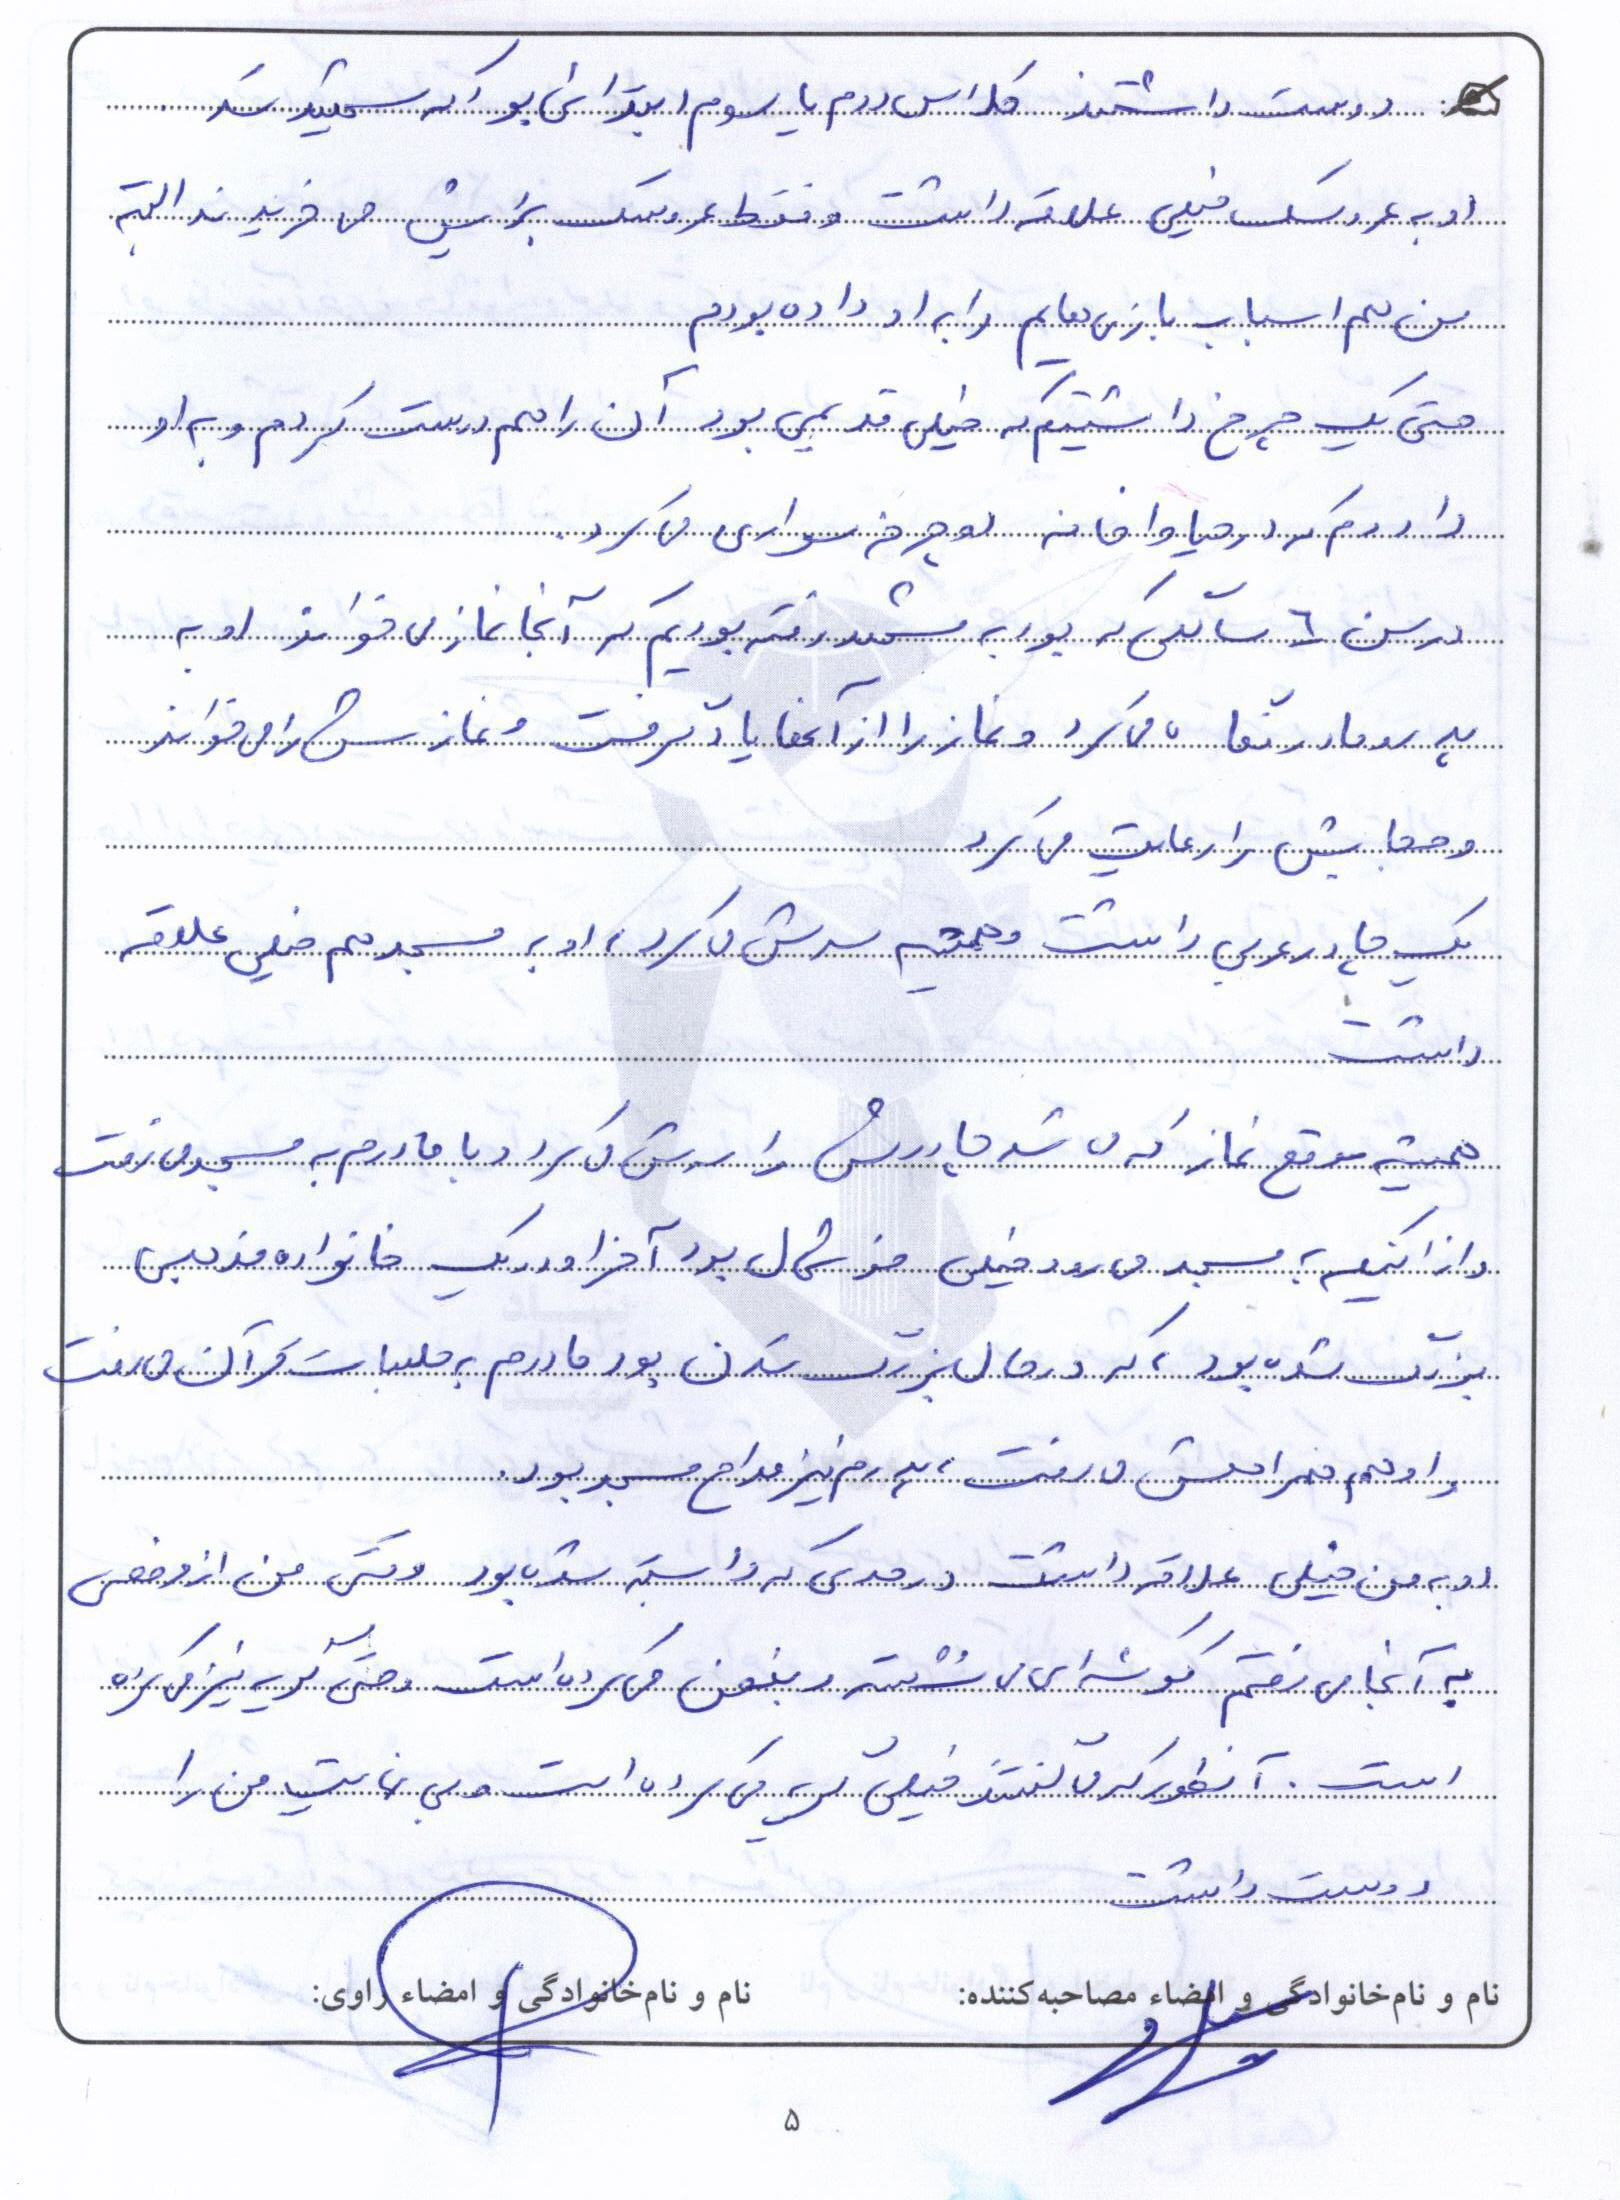 دوست داشتند کلاس دوم یا سوم ابتدائی بود که شهید شد
او به عروسک خیلی علاقه داشت و فقط عروسک برایش می خریدند البته
من هم اسباب بازی هایم را به او داده بودم
حتی یک چرخ داشتیم که خیلی قدیمی بود آن را هم درست کردم و به او
دادم که در حیاط خانه دوچرخه سواری می کرد.
در سن ٦ سالگی که بود به مشهد رفته بودیم که آنجا نماز می خواند او به
پدر و مادر نگاه می کرد و نماز را از آنها یاد گرفت و نمازش را می خواند
و حجابش را رعایت می کرد
یک چادر عربی داشت و همیشه سرش می کرد، او به مسجد هم خیلی علاقه
داشت
همیشه موقع نماز که می شد چادرش را سرش می کرد و با مادرم به مسجد می رفت
و از اینکه به مسجد می رود خیلی خوشحال بود آخر او در یک خانواده مذهبی
بزرگ شده بود، که در حال بزرگ شدن بود مادرم به جلسات قرآن می رفت
و او هم همراهش می رفت، پدرم نیز مداح مسجد بود.
او به من خیلی علاقه داشت در حدی که وابسته شده بود وقتی من از مرخصی
به آنجا می رفتم گوشه ای می نشسته و بغض می کرده است و حتی گریه نیز می کرده
است. آنطور که می گفتند خیلی گریه می کرده است و بی نهایت من را
دوست داشت
نام و نام‌خانوادگی و امضاء مصاحبه‌کننده: نام و نام‌خانوادگی و امضاء راوی:
۵